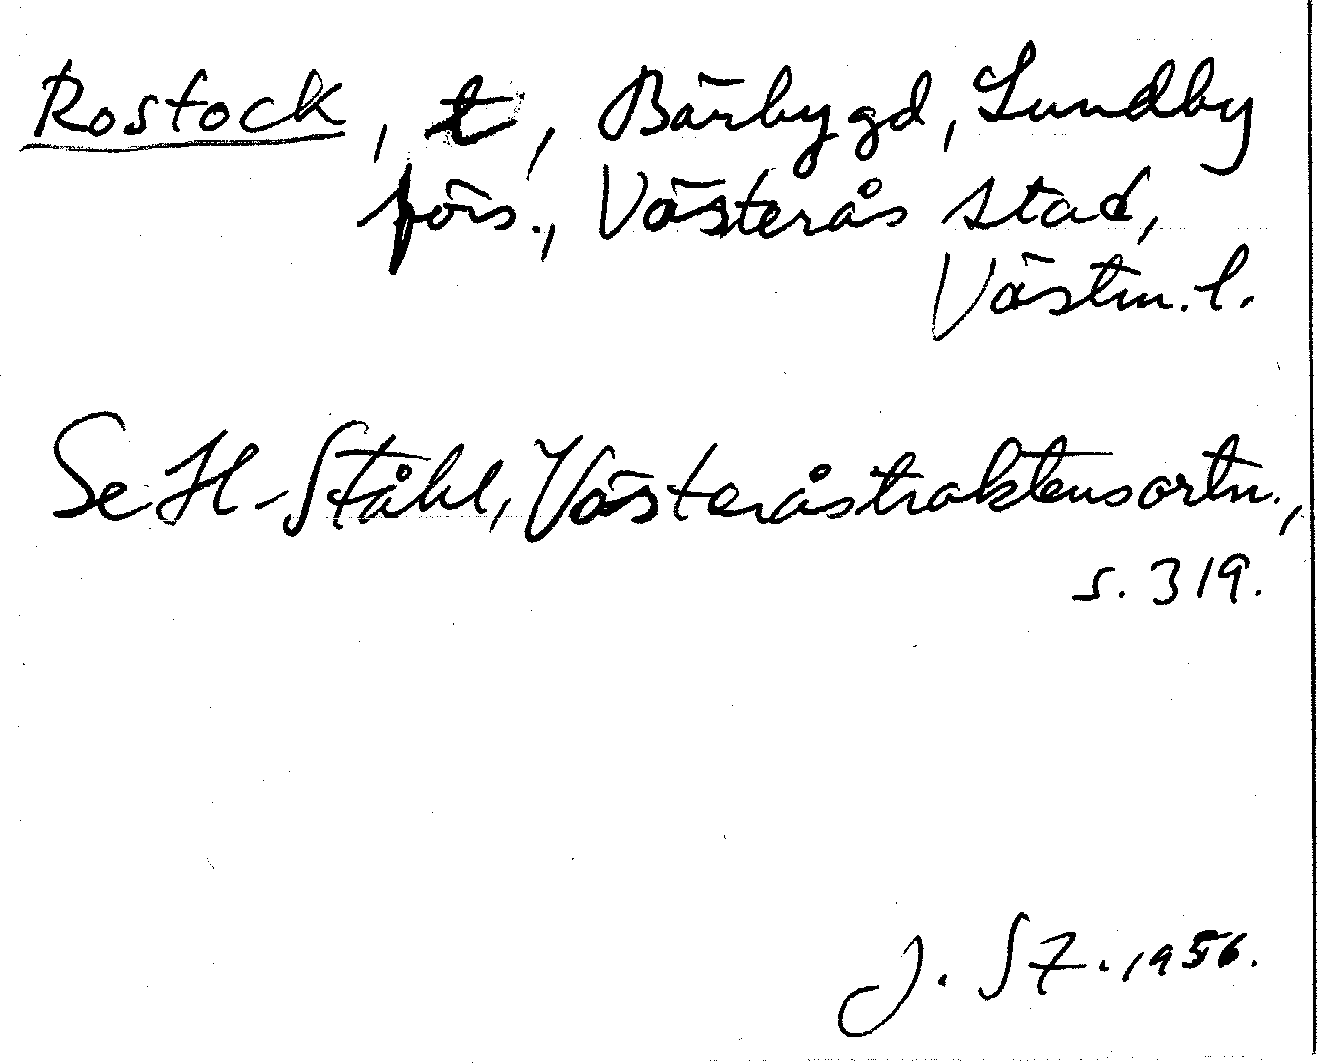 Rostock, t, Bärbygd, Lundby
förs., Västerås stad,
Västm. l.
Se H. Ståhl, Västeråstraktens ortn.,
s. 319.
J. St. 1956.